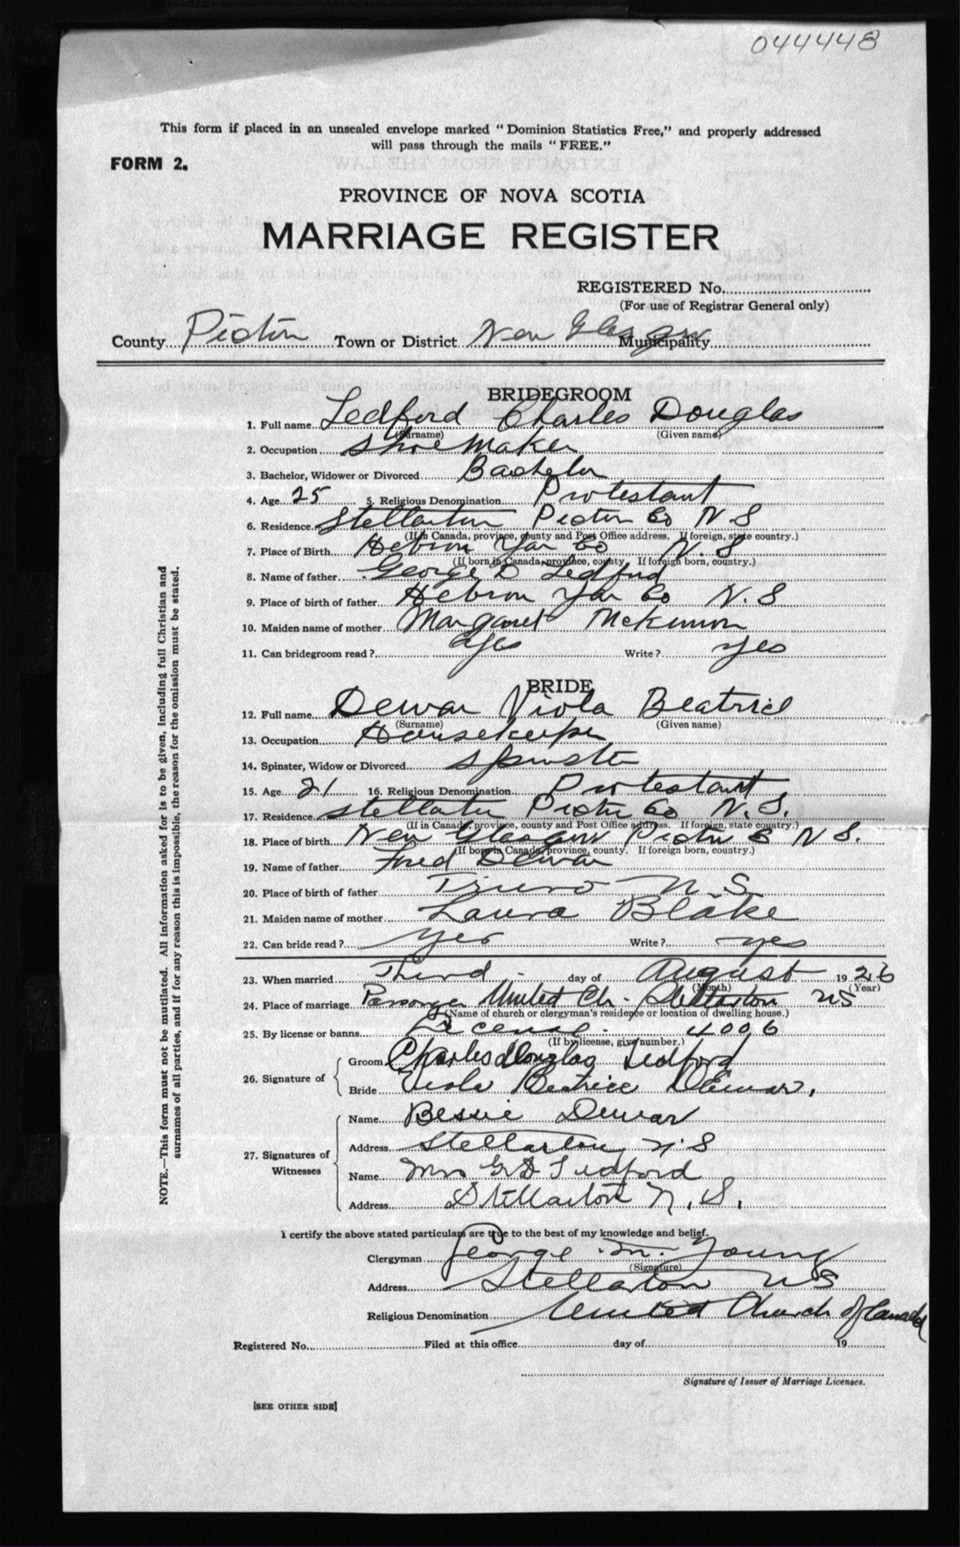 044448
This form if placed in an unsealed envelope marked "Dominion Statistics Free," and properly addressed
will pass through the mails "FREE."
FORM 2.
PROVINCE OF NOVA SCOTIA
MARRIAGE REGISTER
REGISTERED No.
(For use of Registrar General only)
County Pictou Town or District New Glasgow Municipality
BRIDEGROOM
1. Full name Ledford Charles Douglas
(Surname) (Given name)
2. Occupation Shoe Maker
3. Bachelor, Widower or Divorced Bachelor
4. Age 25 5. Religious Denomination Protestant
6. Residence Stellarton Pictou Co N S
(If in Canada, province, county and Post Office address. If foreign, state country.)
7. Place of Birth Hebron Yar Co N. S
(If born in Canada, province, county. If foreign born, country.)
8. Name of father George D Ledford
9. Place of birth of father Hebron Yar Co N. S
10. Maiden name of mother Margaret McKinnon
11. Can bridegroom read? Yes Write? yes
BRIDE
12. Full name Dewar Viola Beatrice
(Surname) (Given name)
13. Occupation Housekeeper
14. Spinster, Widow or Divorced Spinster
15. Age 21 16. Religious Denomination Protestant
17. Residence Stellarton Pictou Co N. S.
(If in Canada, province, county and Post Office address. If foreign, state country.)
18. Place of birth New Glasgow Pictou Co N S.
(If born in Canada, province, county. If foreign born, country.)
19. Name of father Fred Dewar
20. Place of birth of father Truro N. S
21. Maiden name of mother Laura Blake
22. Can bride read? yes Write? yes
23. When married Third day of August 1926
(Month) (Year)
24. Place of marriage United Ch. Stellarton NS
(Name of church or clergyman's residence or location of dwelling house.)
25. By license or banns License. 4006
(If by license, give number.)
26. Signature of Groom Charles Douglas Ledford
Bride Viola Beatrice Dewar.
27. Signatures of Witnesses
Name Bessie Dewar
Address Stellarton N. S
Name Mrs G D Ledford
Address Stellarton N. S.
I certify the above stated particulars are true to the best of my knowledge and belief.
Clergyman George M. Young
(Signature)
Address Stellarton N S
Religious Denomination United Church of Canada
Registered No. Filed at this office day of 19
Signature of Issuer of Marriage Licenses.
[SEE OTHER SIDE]
NOTE.—This form must not be mutilated. All information asked for is to be given, including full Christian and
surnames of all parties, and if for any reason this is impossible, the reason for the omission must be stated.